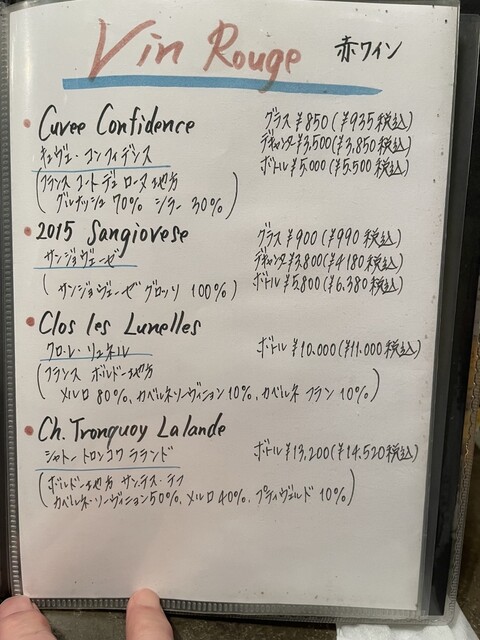 Vin Rouge 赤ワイン
Cuvee Confidence グラス ¥850(¥935税込)
キュヴェ・コンフィデンス デキャンタ¥3,500(¥3,850税込)
ボトル¥5,000(¥5,500税込)
(フランス コート デュ ローヌ地方
グルナッシュ 70% シラー 30%)
2015 Sangiovese グラス¥900(¥990税込)
サンジョヴェーゼ デキャンタ¥3,800(¥4,180税込)
(サンジョヴェーゼ グロッソ 100%) ボトル¥5,800(¥6,380税込)
Clos les Lunelles
クロ・レ・リュネル ボトル¥10,000(¥11,000税込)
(フランス ボルドー地方
メルロ 80%, カベルネソーヴィニョン10%, カベルネ フラン 10%)
Ch. Tronquoy Lalande
シャトー トロンコワ ラランド ボトル¥13,200(¥14,520税込)
(ボルドー地方 サンテス・テフ
カベルネ・ソーヴィニョン50%, メルロ 40%, プティヴェルド 10%)